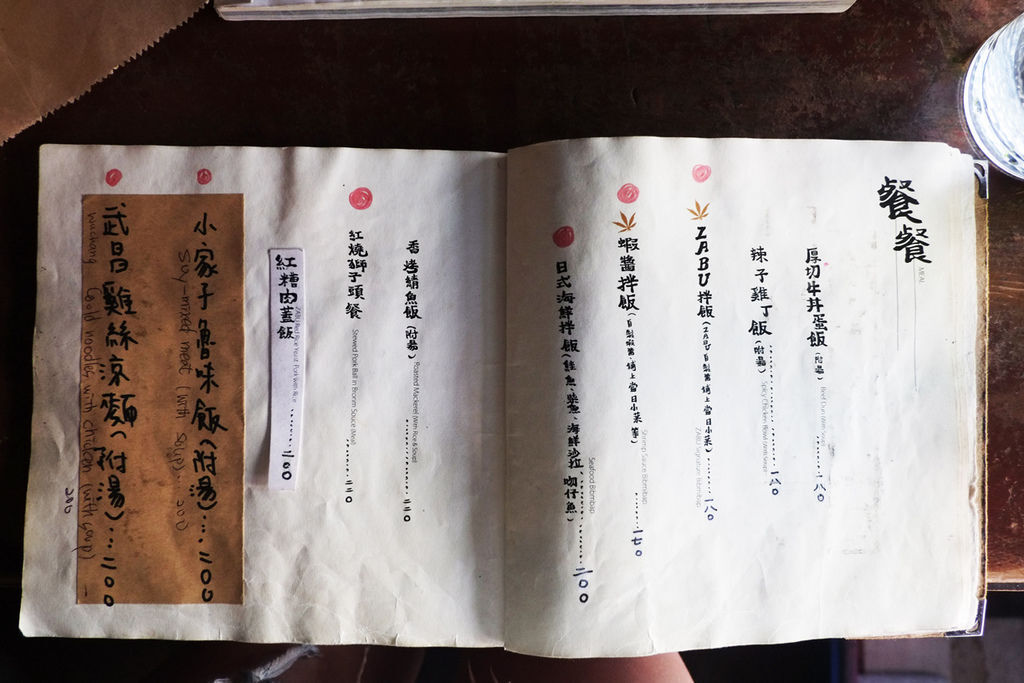 餐餐
MEAL
厚切牛丼蛋飯(附湯)......一八〇
Beef Don (With Soup)
辣子雞丁飯(附湯)......一八〇
Spicy Chicken Bowl (With Soup)
ZABU拌飯(ZABU自製醬、埔上當日小菜)......一八〇
ZABU Signature Bibimbap
蝦醬拌飯(自製蝦醬、埔上當日小菜等)......一七〇
Shrimp Sauce Bibimbap
日式海鮮拌飯(鮭魚、柴魚、海鮮沙拉、吻仔魚)......二〇〇
Seafood Bibimbap
香烤鯖魚飯(附湯)......二二〇
Roasted Mackerel (With Rice & Soup)
紅燒獅子頭餐......二二〇
Stewed Pork Ball in Brown Sauce (Meal)
紅糟肉蓋飯......二〇〇
ZABU Red Rice Yeast Pork With Rice
小家子魯味飯(附湯)...二〇〇
Soy-mixed meat (with soup)...200
武昌雞絲涼麵(附湯)...二〇〇
Wuchang Cold noodles with chicken (with soup)
200